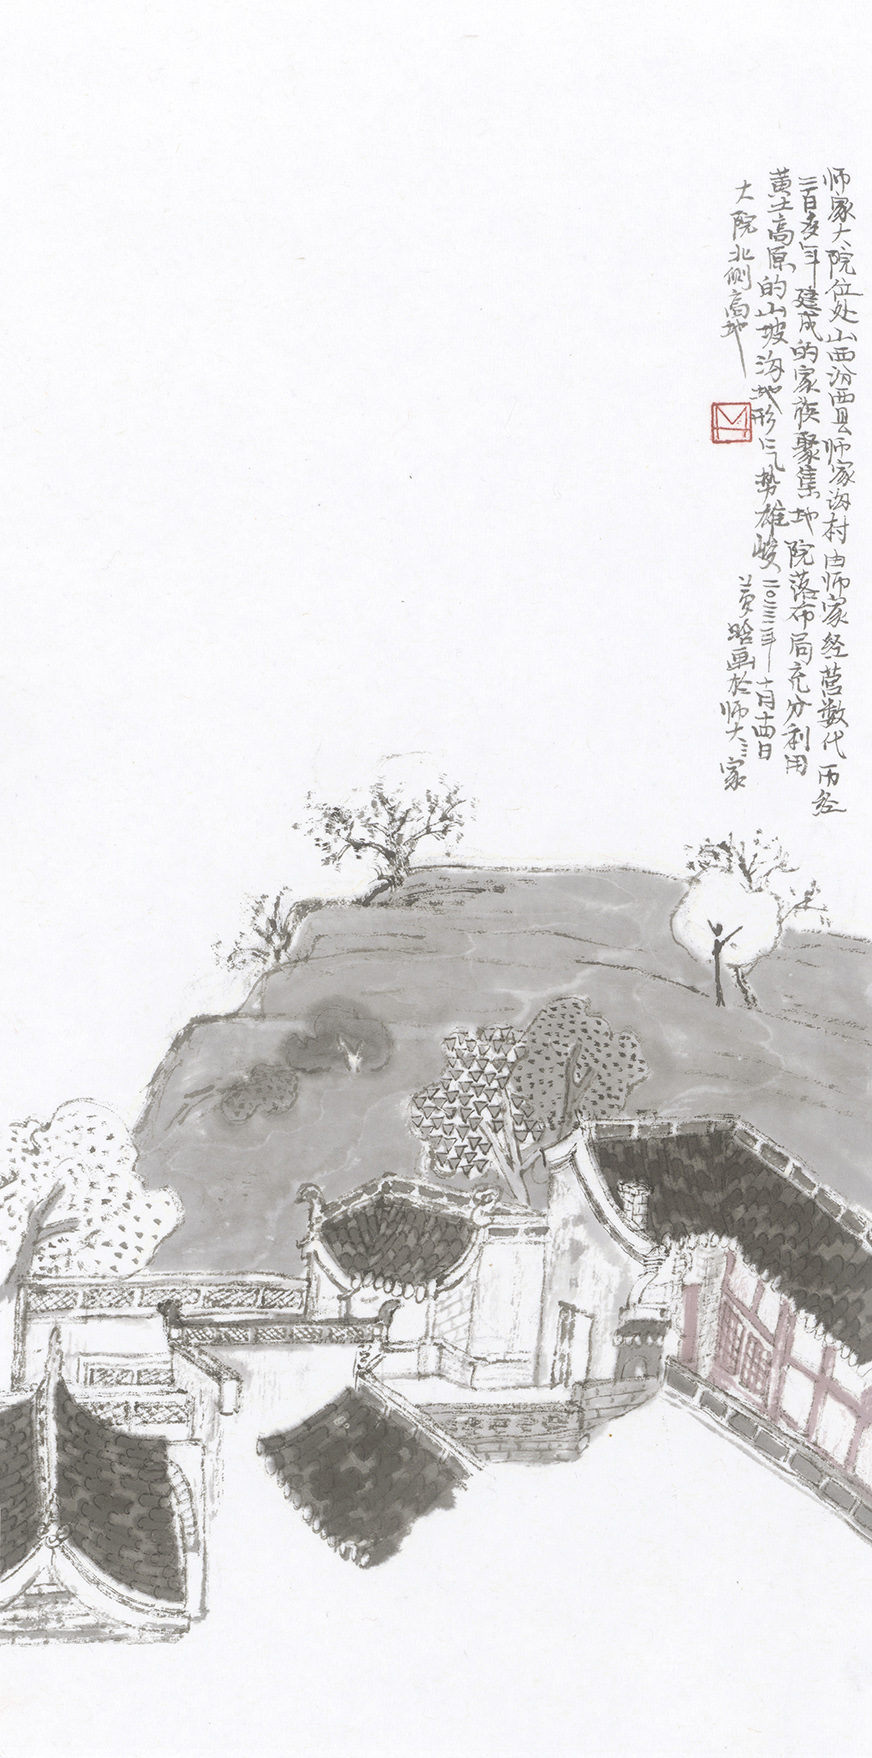 师家大院位处山西汾西县师家沟村由师家经营数代历经
三百多年建成的家族聚集地院落布局充分利用
黄土高原的山坡沟地形气势雄峻二〇二三年十月十四日
黄晗画于师大家
大院北侧高地